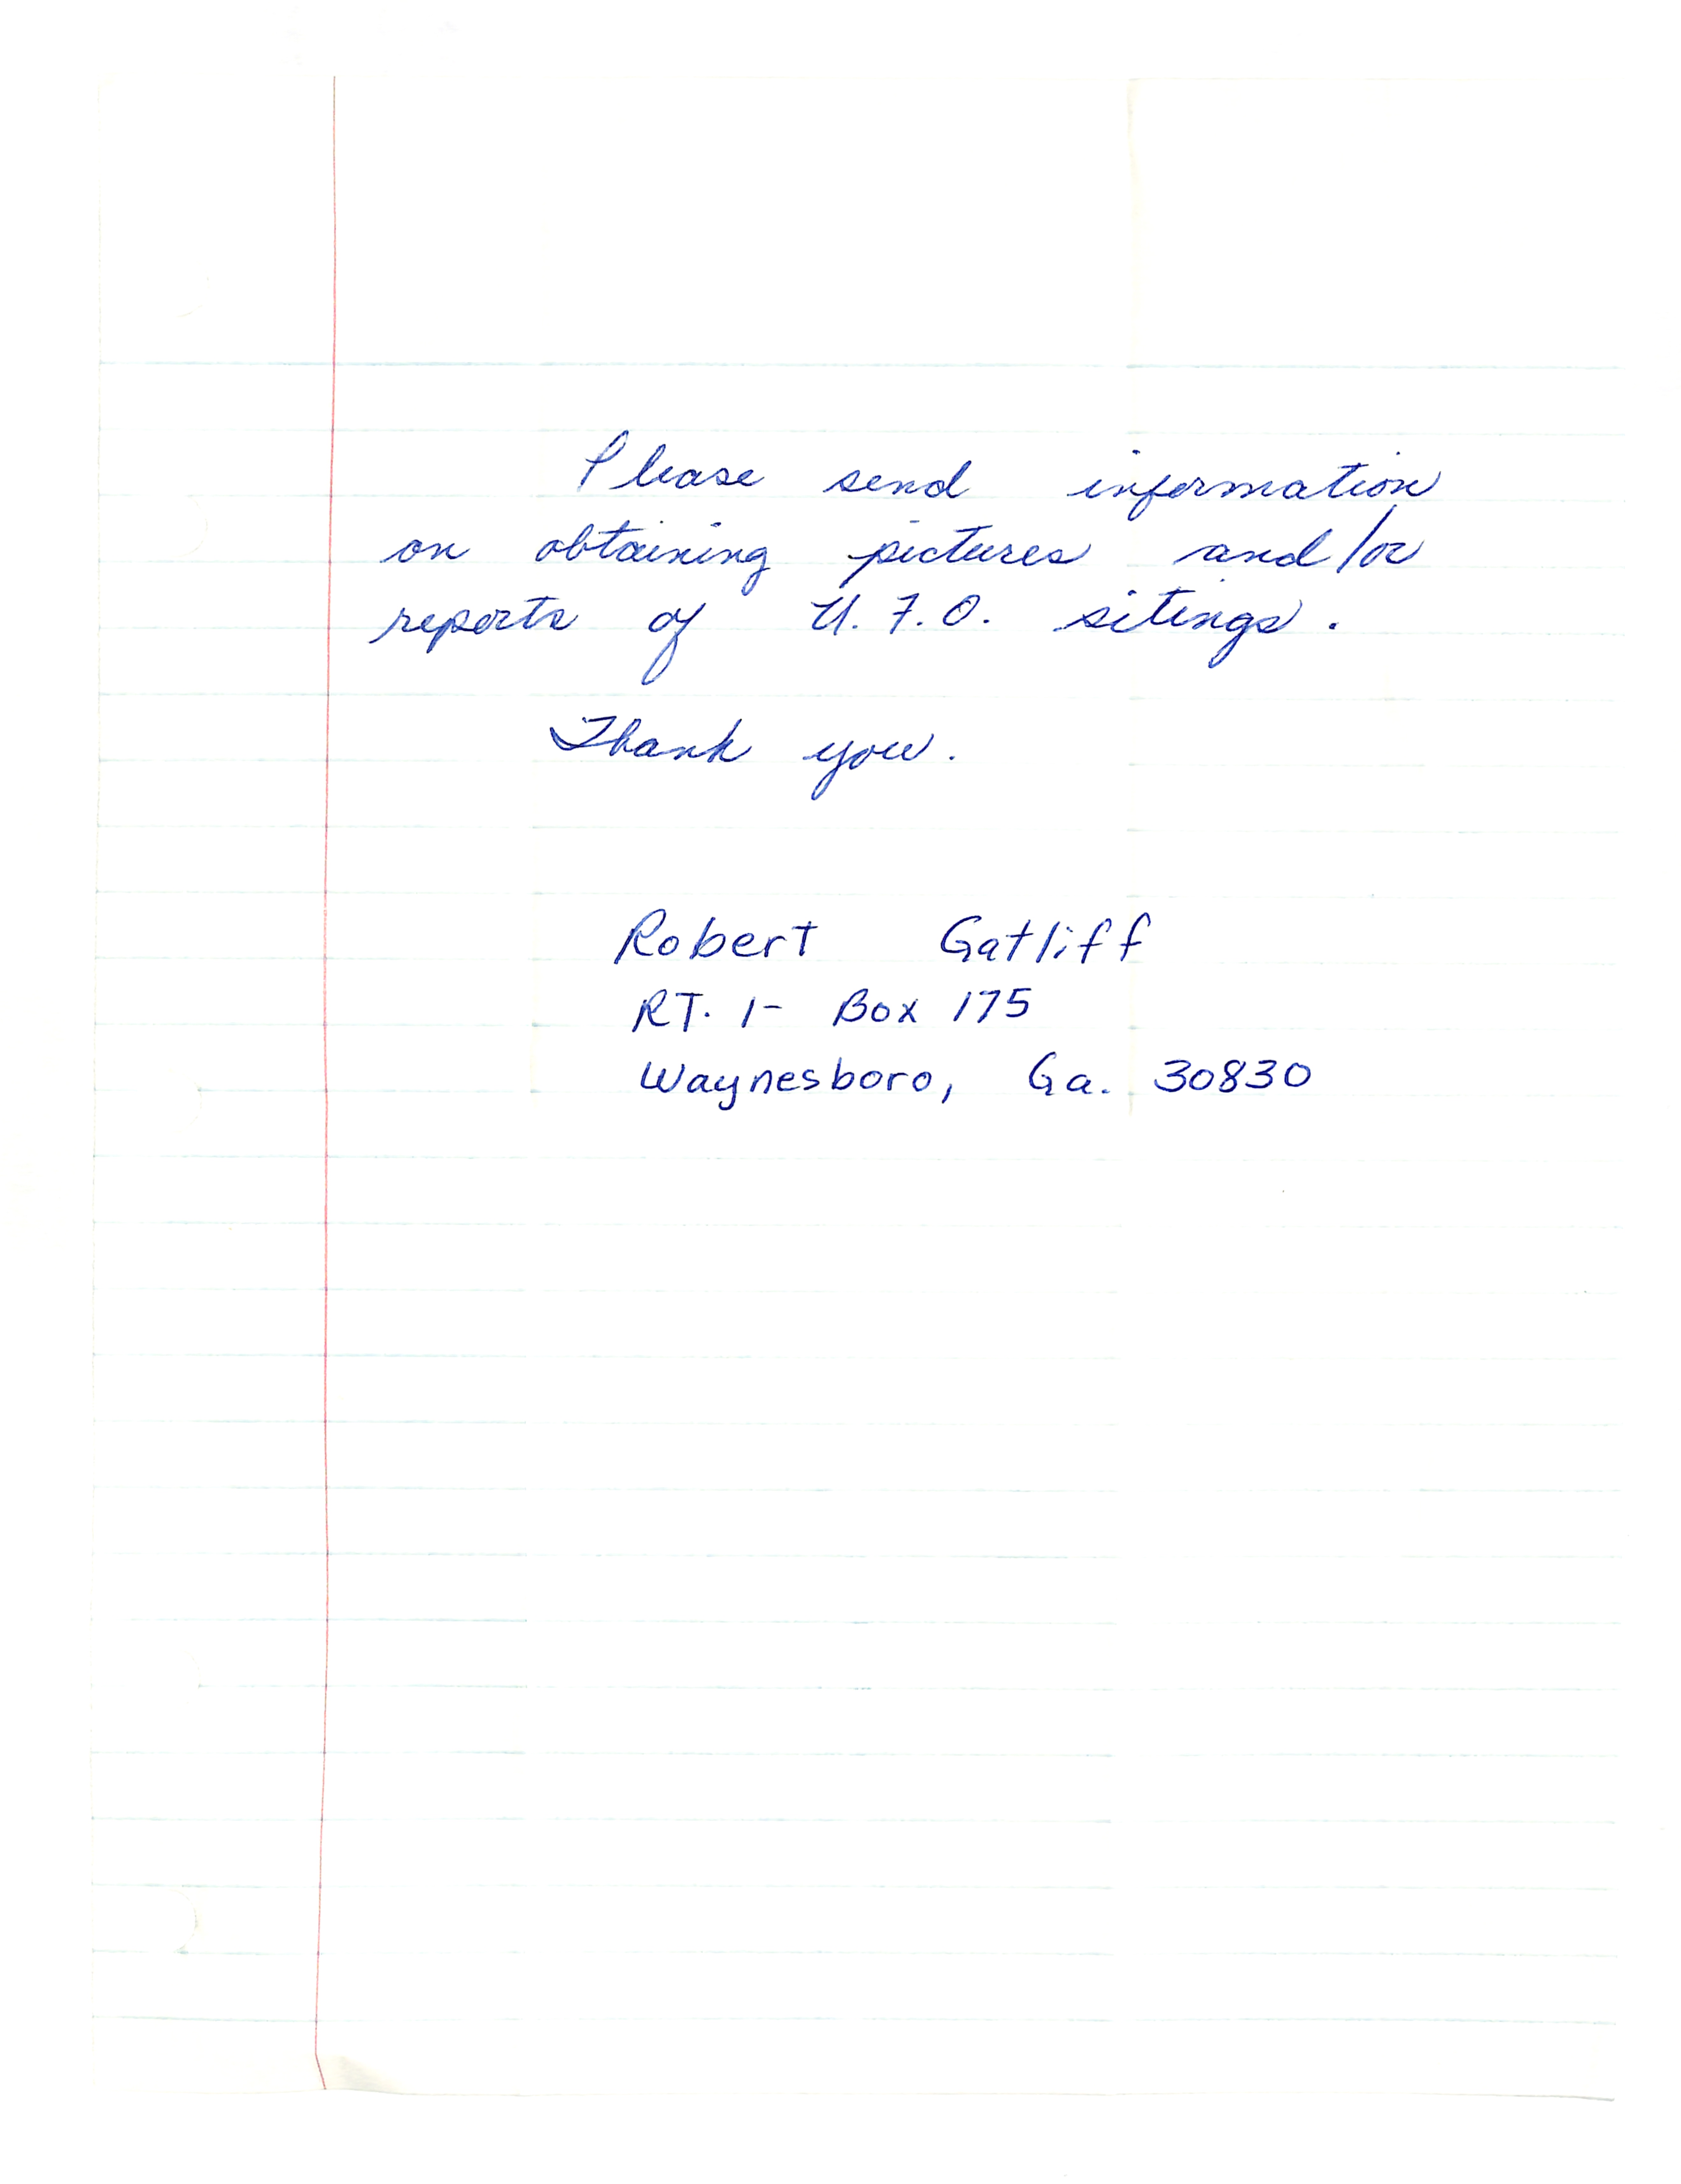 Please send information
on obtaining pictures and/or
reports of U.F.O. sitings.
Thank you.
Robert Gatliff
RT. 1- Box 175
Waynesboro, Ga. 30830